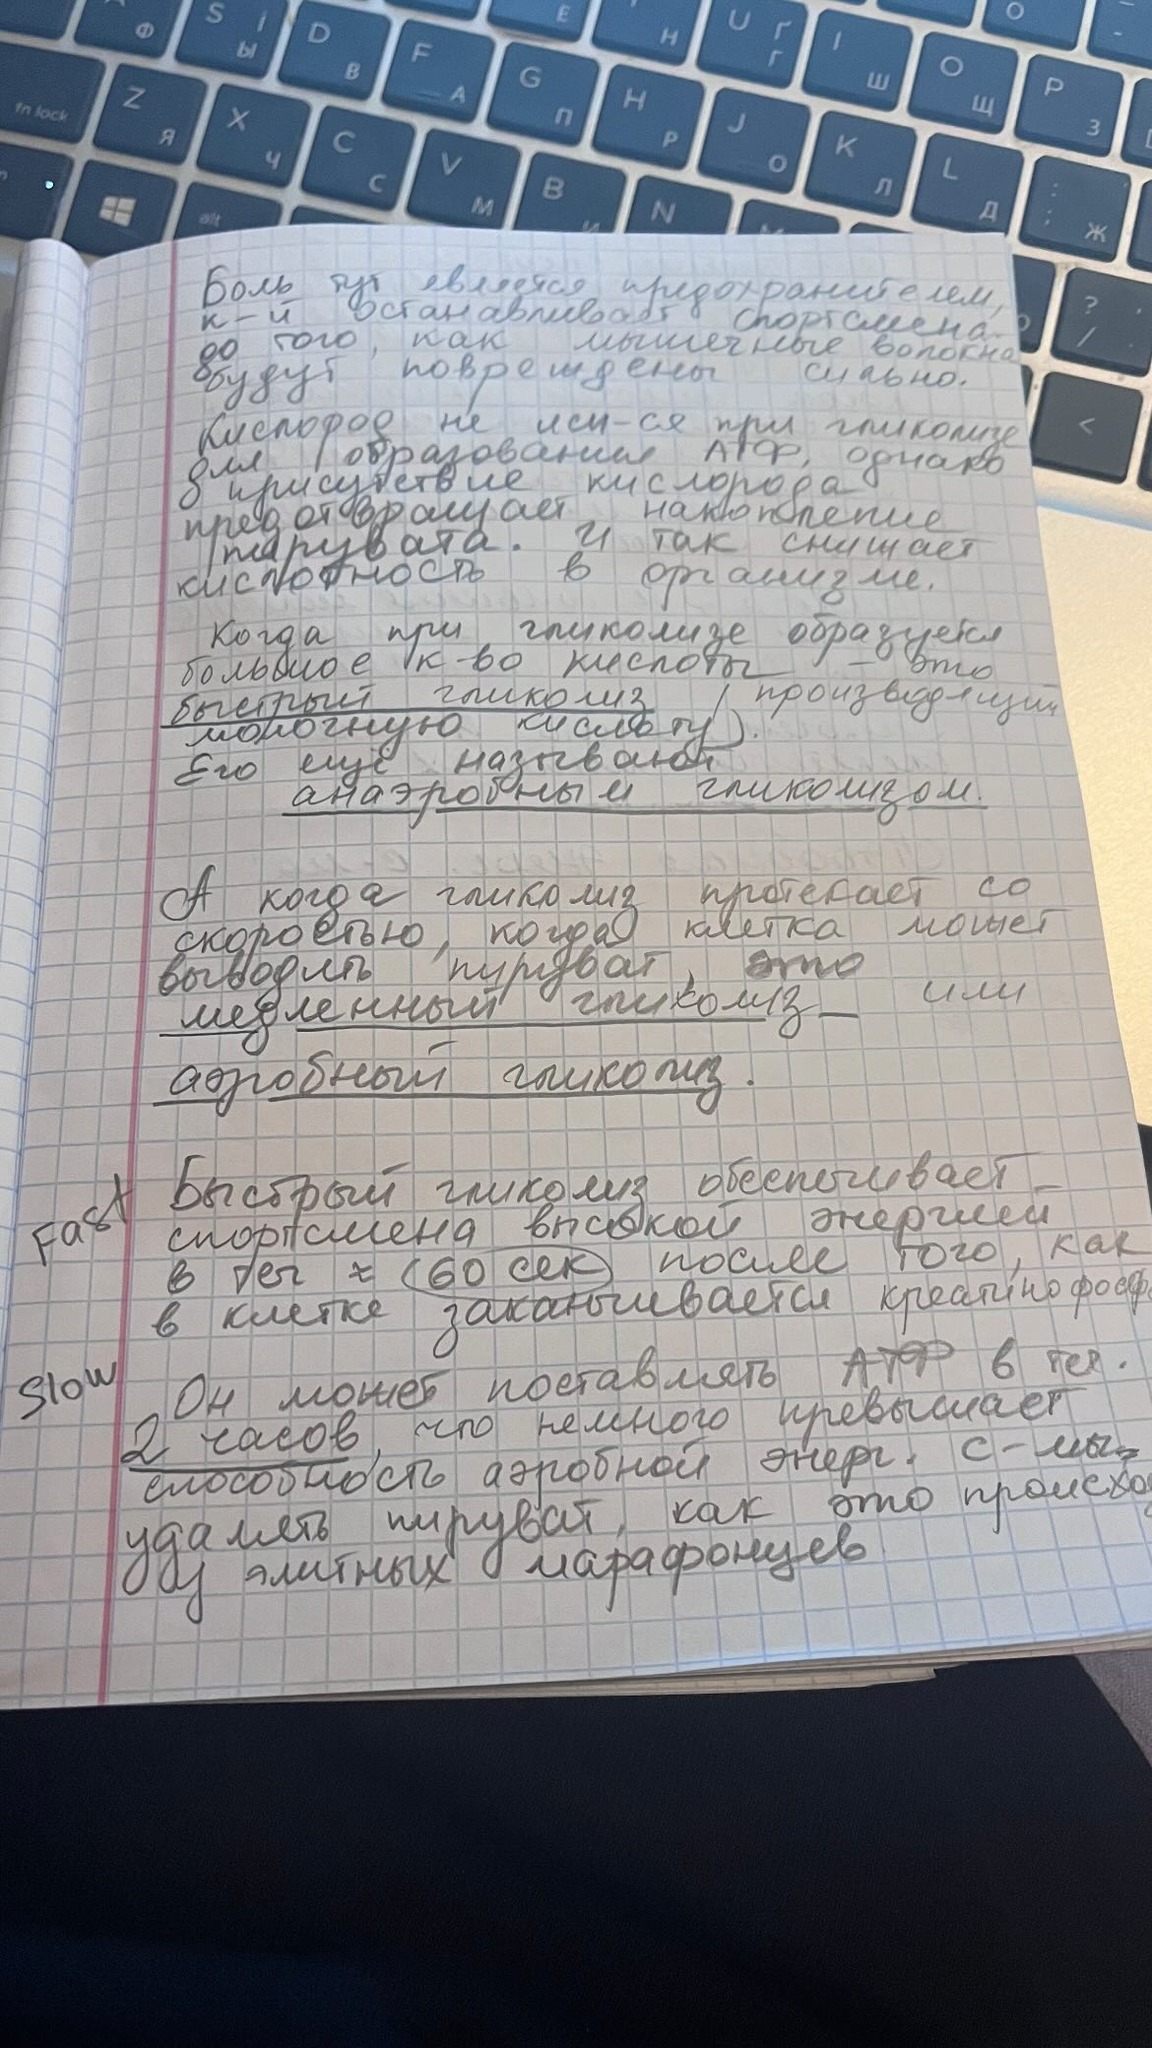 S І Ы
D В
F А
G П
Е
Н
U Г Ґ
I Ш
O Щ
P З
О
Ф
fn lock
Z Я
X Ч
C С
V М
B И
N
H Р
J О
K Л
L Д
: ; Ж
? /
<
alt
Боль тут является предохранителем,
к-й останавливает спортсмена
до того, как мышечные волокна
будут повреждены сильно.
Кислород не исп-ся при гликолизе
для образования АТФ, однако
присутствие кислорода
предотвращает накопление
пирувата. И так снижает
кислотность в организме.
Когда при гликолизе образуется
большое к-во кислоты – это
быстрый гликолиз (производящий
молочную кислоту).
Его ещё называют
анаэробным гликолизом.
А когда гликолиз протекает со
скоростью, когда клетка может
выводить пируват, это
медленный гликолиз или
аэробный гликолиз.
Fast Быстрый гликолиз обеспечивает
спортсмена высокой энергией
в теч ≈ (60 сек) после того, как
в клетке заканчивается креатинофосф
Slow Он может поставлять АТФ в теч.
2 часов, что немного превышает
способность аэробной энерг. с-мы
удалять пируват, как это происхо
у элитных марафонцев